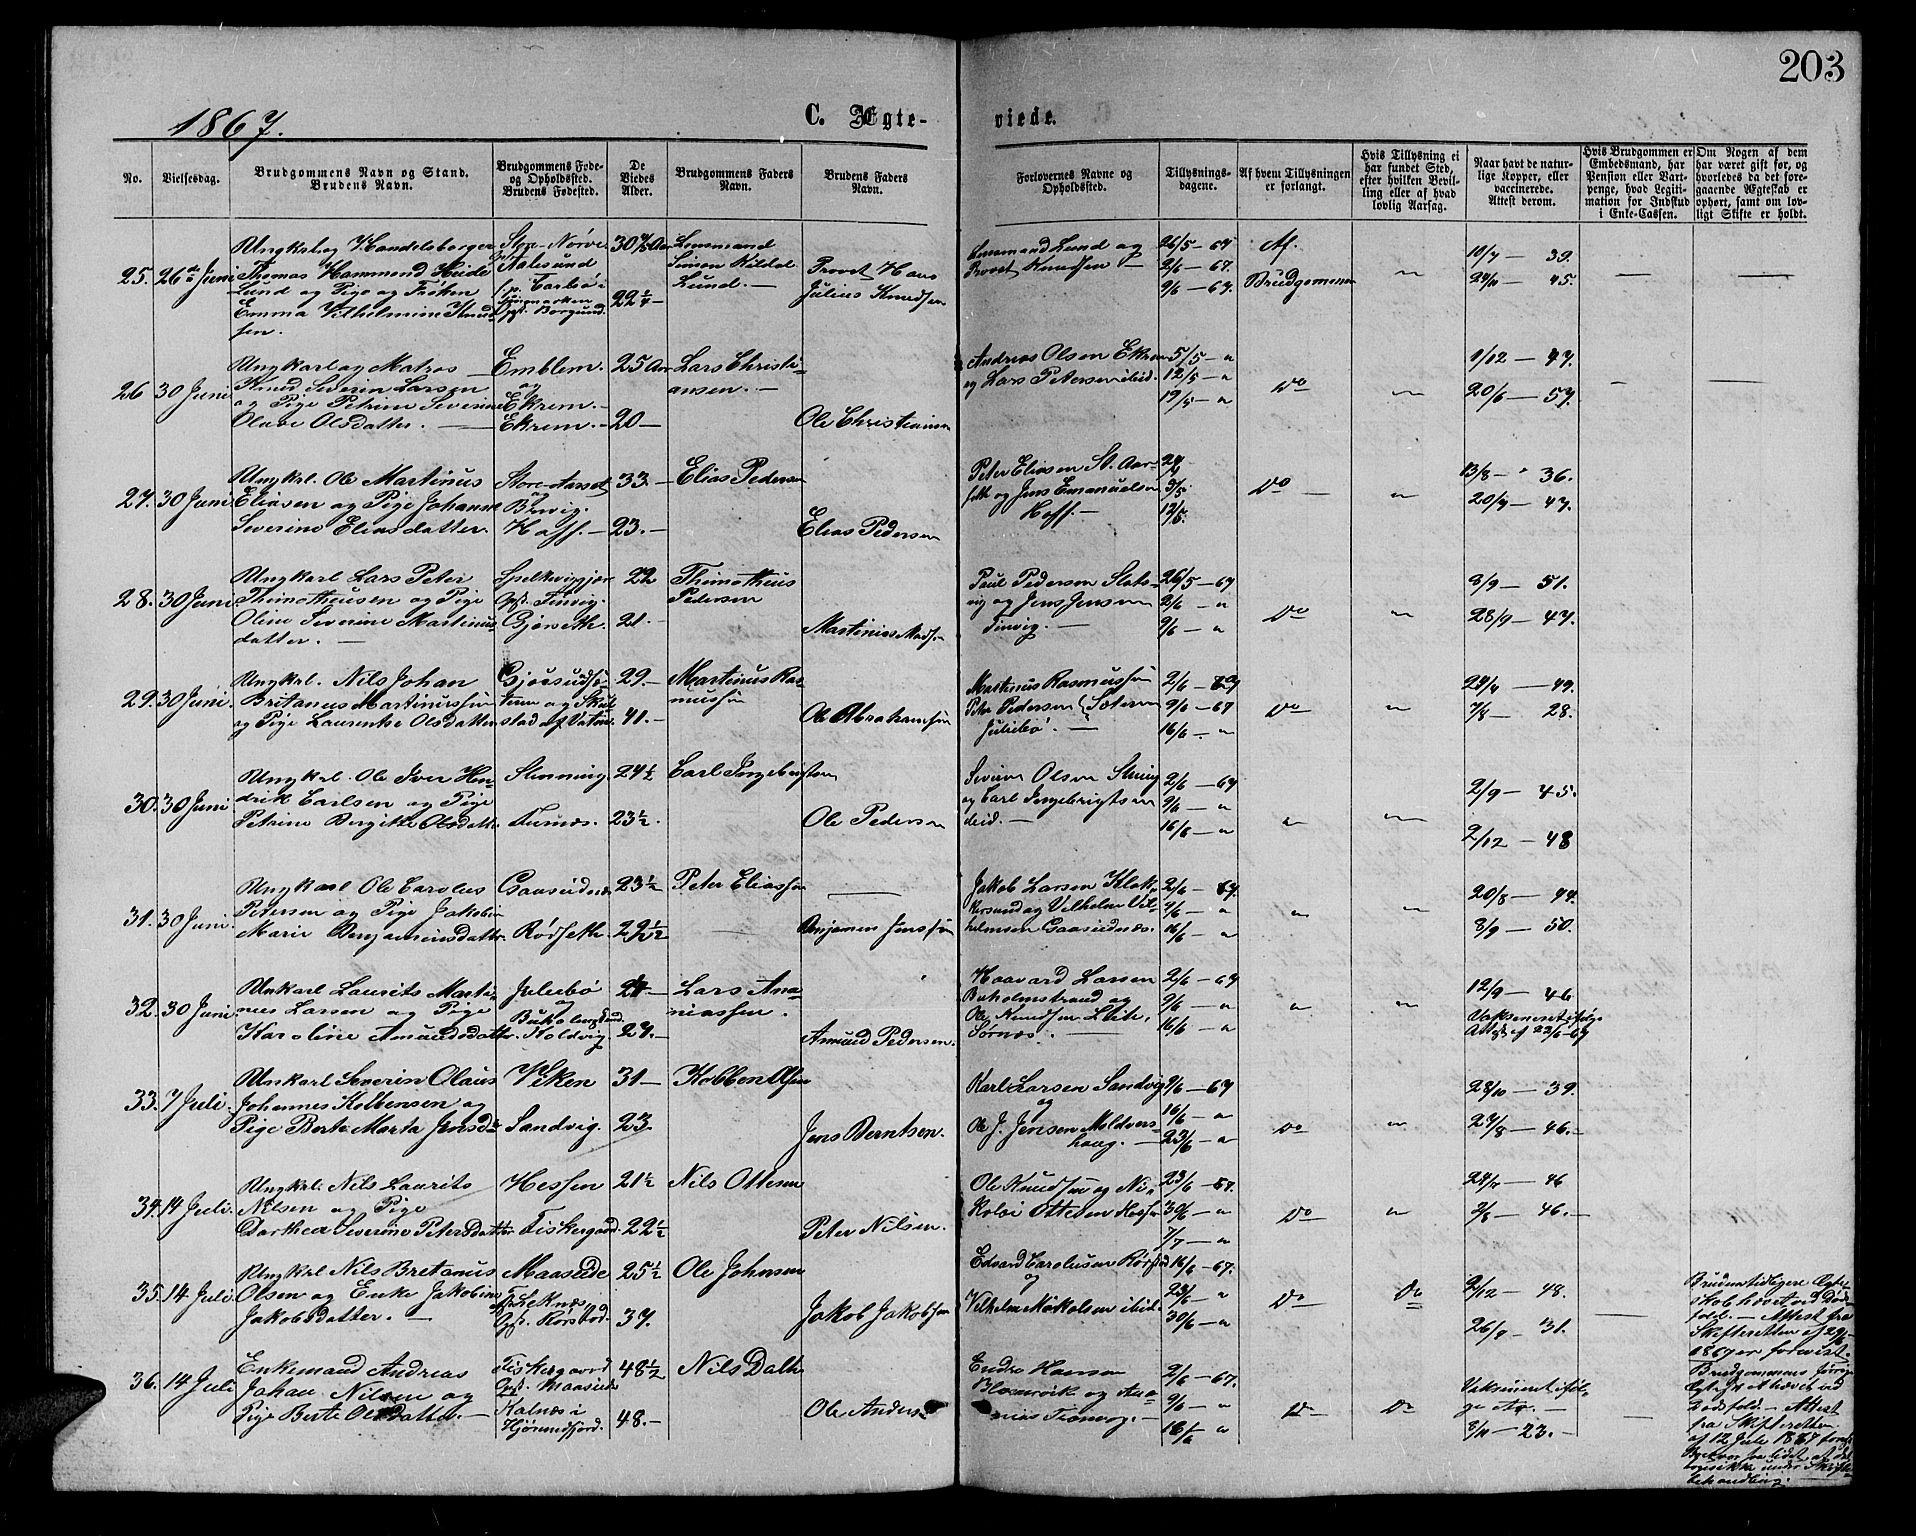 203
1867.
C. Ægte-
viede.
No.
Vielsesdag.
Brudgommens Navn og Stand.
Brudens Navn.
Brudgommens Føde-
og Opholdssted.
Brudens Fødested.
De
Viedes
Alder.
Brudgommens Faders
Navn.
Brudens Faders
Navn.
Forlovernes Navne og
Opholdssted.
Tillysnings-
dagene.
Af hvem Tillysningen
er forlangt.
Hvis Tillysning ei
har fundet Sted,
efter hvilken Bevil-
ling eller af hvad
lovlig Aarsag.
Naar havt de natur-
lige Kopper, eller
vaccinerede.
Attest derom.
Hvis Brudgommen er
Embedsmand, har
Pension eller Vart-
penge, hvad Legiti-
mation for Indskud
i Enke-Cassen.
Om Nogen af dem
har været gift før, og
hvorledes da det fore-
gaaende Ægteskab er
ophørt, samt om lov-
ligt Skifte er holdt.
25. 26de Juni
Ungkarl og Handelsborger
Thomas Hammond Heide
Lund og Pige og Frøken
Emma Vilhelmine Knud-
sen.
Aalesund
Borgund
22 1/4
Lensmand
Simon Kildal
Lund. —
Provst Hans
Julius Knudsen
Lensmand Lund og
Provst Knudsen —
26/5 — 67
2/6 — 67.
9/6 — 67.
Af
Brudgommen
10/7 — 39.
24/10 — 45.
26 30 Juni
Ungkarl og Matros —
Knud Severin Larsen
og Pige Petrine Severine
Olave Olsdatter. —
Emblem.
og
Ekrem. —
Ekrem. —
25 Aar
20 —
Lars Christi-
ansen. —
Ole Christiansen
Andreas Olsen Ekrem
og Lars Petersen ibid.
5/5 — "
12/5 — "
19/5 — "
Do
1/12 — 47.
20/6 — 57.
27. 30 Juni
Ungkarl. Ole Martinus
Eliasen og Pige Johanne
Severine Eliasdatter.
Store-Aarset
og
Brevig.
Hoff. —
33. —
23. —
Elias Pedersen
Elias Pedersen
Peter Eliasen St. Aar-
seth og Jens Emanuelsen
Hoff. —
5/5
12/5
Do —
13/8 — 36.
20/7 — 47.
28. 30 Juni
Ungkarl Lars Peter
Thimotheusen og Pige
Oline Severine Martinus-
datter. —
Gjørseth
22
21. —
Thimotheus
Pedersen
Martinus Madsen
Paul Pedersen Slate-
vig og Jens Jensen
Tinvig. —
26/5 — 67
2/6 — "
9/6 — "
Do
3/9 — 51.
28/9 — 47.
29. 30 Juni
Ungkarl. Nils Johan
Britanus Martinussen
og Pige Laurenke Olsdatter
29. —
41. —
Martinus Ras-
mussen
Ole Abrahamsen
Martinus Rasmussen
Peter Pedersen Sæteren
Juliebø. —
2/6 — 67
9/6 — 67
16/6 — "
Do
24/4 — 49.
7/8 — 28.
30. 30 Juni
Ungkarl. Ole Iver Hen-
drik Carlsen og Pige
Petrine Bergitte Olsdatter
Slinning.
Furnæs.
24 1/2
23 1/2.
Carl Ingebrigtsen
Ole Pedersen
Severin Olsen Slining
og Carl Ingebrigtsen
ibid. —
2/6 — 67
9/6 — "
16/6 — "
2/9 — 45.
2/12 — 48
31. 30 Juni
Ungkarl Ole Carolus
Petersen og Pige Jakobine
Marie Benjaminsdatter.
Gaaseidnæs
Rødseth.
23 1/2
29 1/2
Peter Eliassen
Benjamin Jenssen
Jakob Larsen Klok-
kersund og Vilhelm Vil-
helmsen Gaaseidnæs.
2/6 — 67.
9/6 — "
16/6 — "
20/8 — 44.
8/9 — 50.
32. 30 Juni
Unkarl Laurits Marti-
nus Larsen og Pige
Karoline Amundsdatter.
Juliebø
og
Bukholmstrand
Koldvig.
24 —
27. —
Lars Ana-
niassen.
Amund Pedersen.
Haavard Larsen
Bukholmstrand og
Ole Knudsen Leite,
Sørnæs. —
2/6 — 67
9/6 — "
16/6 — "
12/9 — 46
Vaksineret ifølge
Attest af 22/6 — 67
33. 7 Juli.
Unkarl Severin Olaus
Johannes Kolbensen og
Pige Berte Marta Jensdr
Viken
Sandvig.
31 —
23.
Kolben Olsen
Jens Berntsen.
Karl Larsen Sandvig
og
Ole J. Jensen Moldvers-
haug. —
9/6 — 67
16/6 — "
23/6 — "
Do
23/10 — 39.
27/8 — 46. —
34. 14 Juli.
Ungkarl. Nils Laurits
Nilsen og Pige
Dorthea Severine Petersdatter
Hessen
Fiskergaard
21 1/2
22 1/2
Nils Ottesen
Peter Nilsen.
Ole Knudsen og Ni-
kolai Ottesen Hessen
23/6 — 67.
30/6 — "
7/7 — "
Do
46
2/8 — 46. —
35. 14 Juli.
Ungkarl Nils Bretanus
Olsen og Enke Jakobine
Jakobsdatter. —
Maaseide
25 1/2
37.
Ole Johnsen
Jakob Jakobsen
16/6 — 67.
23/6 — "
30/6 — "
Do
Do
2/12 — 48.
26/9 — 31.
Brudens tidligere Ægte-
skab hævet ved Døds-
fald. — Attest fra
Skifteretten af
1867 er forevist.
36. 14 Juli
Enkemand Andreas
Johan Nilsen og
Pige Berte Olsdatter. —
Fiskergaard
Opst. Maaseide
Kalnæs i
Hjørundfjord.
48 1/2
48. —
Nils Dalh
Ole Anders-
Endre Hansen
2/6 — 67.
9/6 — "
16/6 "
Do
Do
Vaksineret iføl-
ge
8/11 — 23. —
Brudgommens forrige
Ægteskab hævet ved
Dødsfald. — Attest
fra Skifteretten
af 12 Juli 1867
behandling.